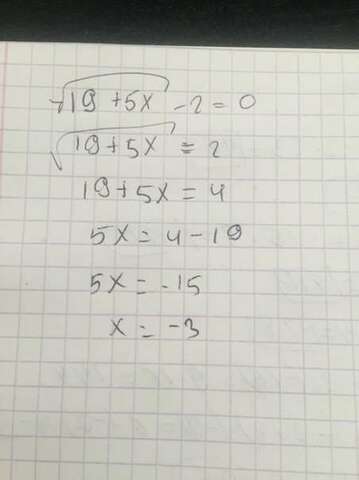 √19+5x - 2 = 0
√19+5x = 2
19+5x = 4
5x = 4-19
5x = -15
x = -3